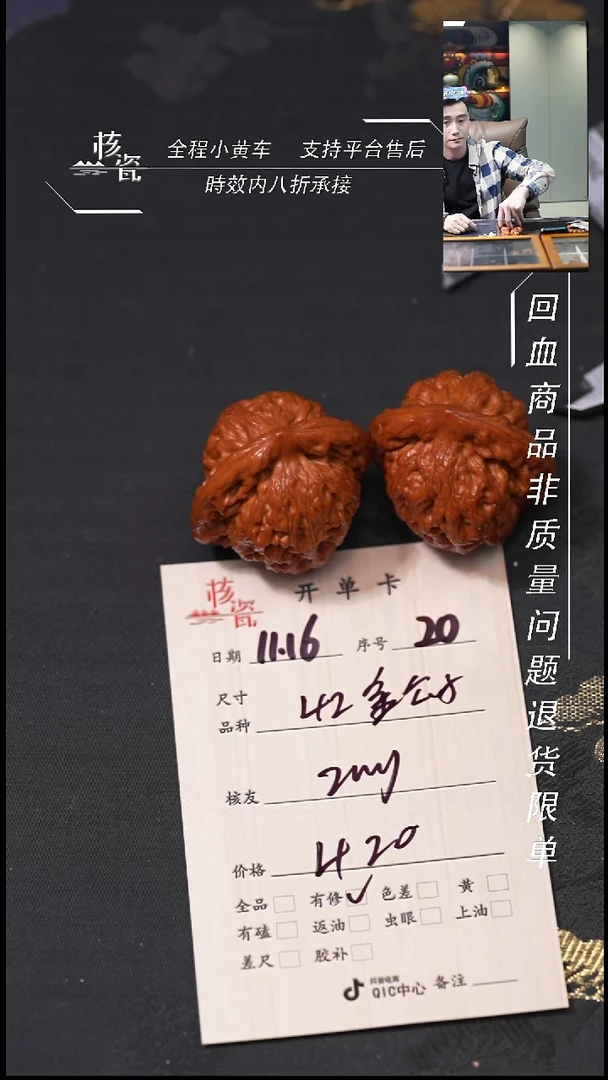 核瓷
全程小黄车 支持平台售后
時效内八折承接
回血商品非质量问题退货限单
核瓷
开单卡
日期 11.16 序号 20
尺寸
品种 42
核友
价格 420
全品 有修 ✓ 色差 黄
有磕 返油 虫眼 上油
差尺 胶补
抖音电商
QIC中心 备注